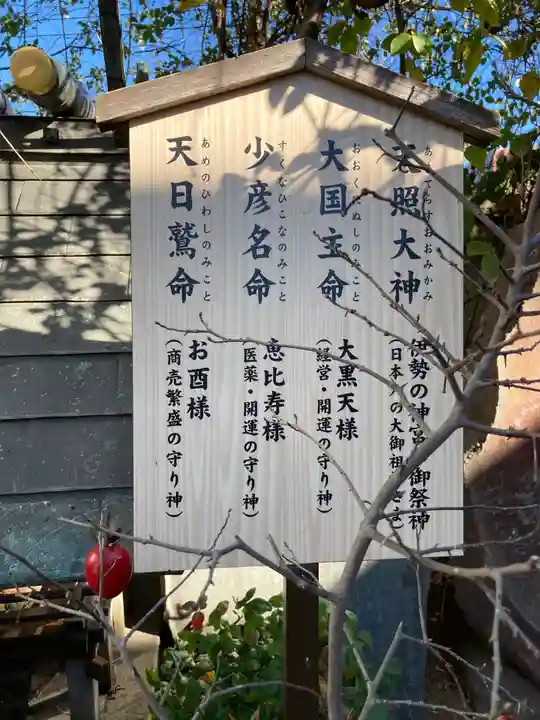 天照大神
あまてらすおおみかみ
伊勢の神宮 御祭神
(日本人の大御祖 さま)
大国主命
おおくにぬしのみこと
大黒天様
(経営・開運の守り神)
少彦名命
すくなひこなのみこと
恵比寿様
(医薬・開運の守り神)
天日鷲命
あめのひわしのみこと
お酉様
(商売繁盛の守り神)